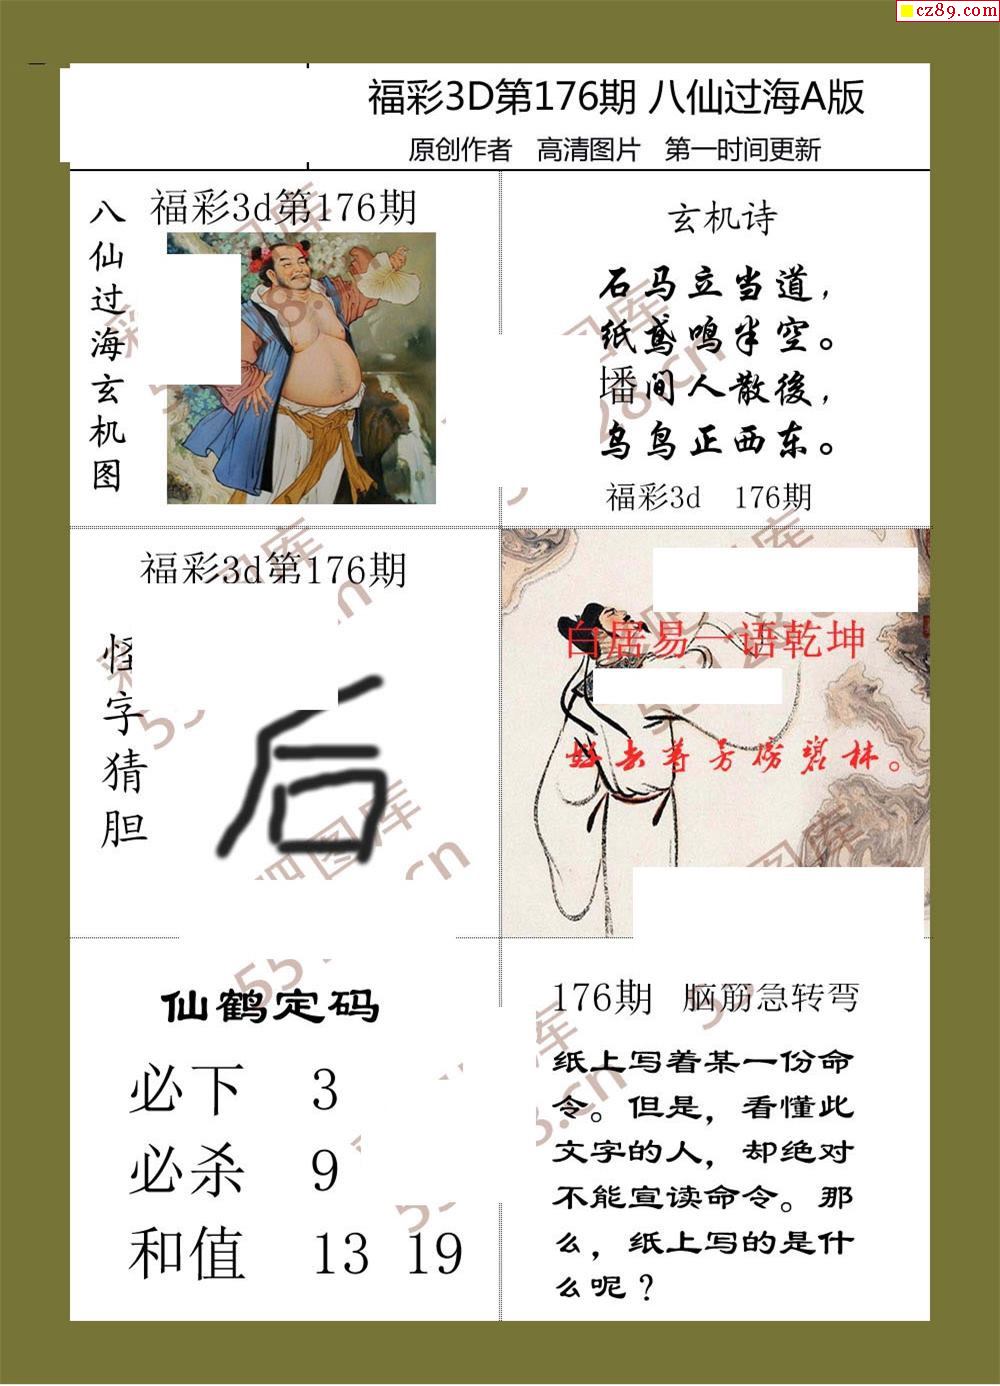 cz89.com
福彩3D第176期 八仙过海A版
原创作者 高清图片 第一时间更新
八仙过海玄机图
福彩3d第176期
玄机诗
石马立当道，
纸鸢鸣半空。
墦间人散後，
乌鸟正西东。
福彩3d 176期
福彩3d第176期
怪字猜胆
后
白居易一语乾坤
好去寻芳傍碧林。
仙鹤定码
必下 3
必杀 9
和值 13 19
176期 脑筋急转弯
纸上写着某一份命
令。但是，看懂此
文字的人，却绝对
不能宣读命令。那
么，纸上写的是什
么呢？